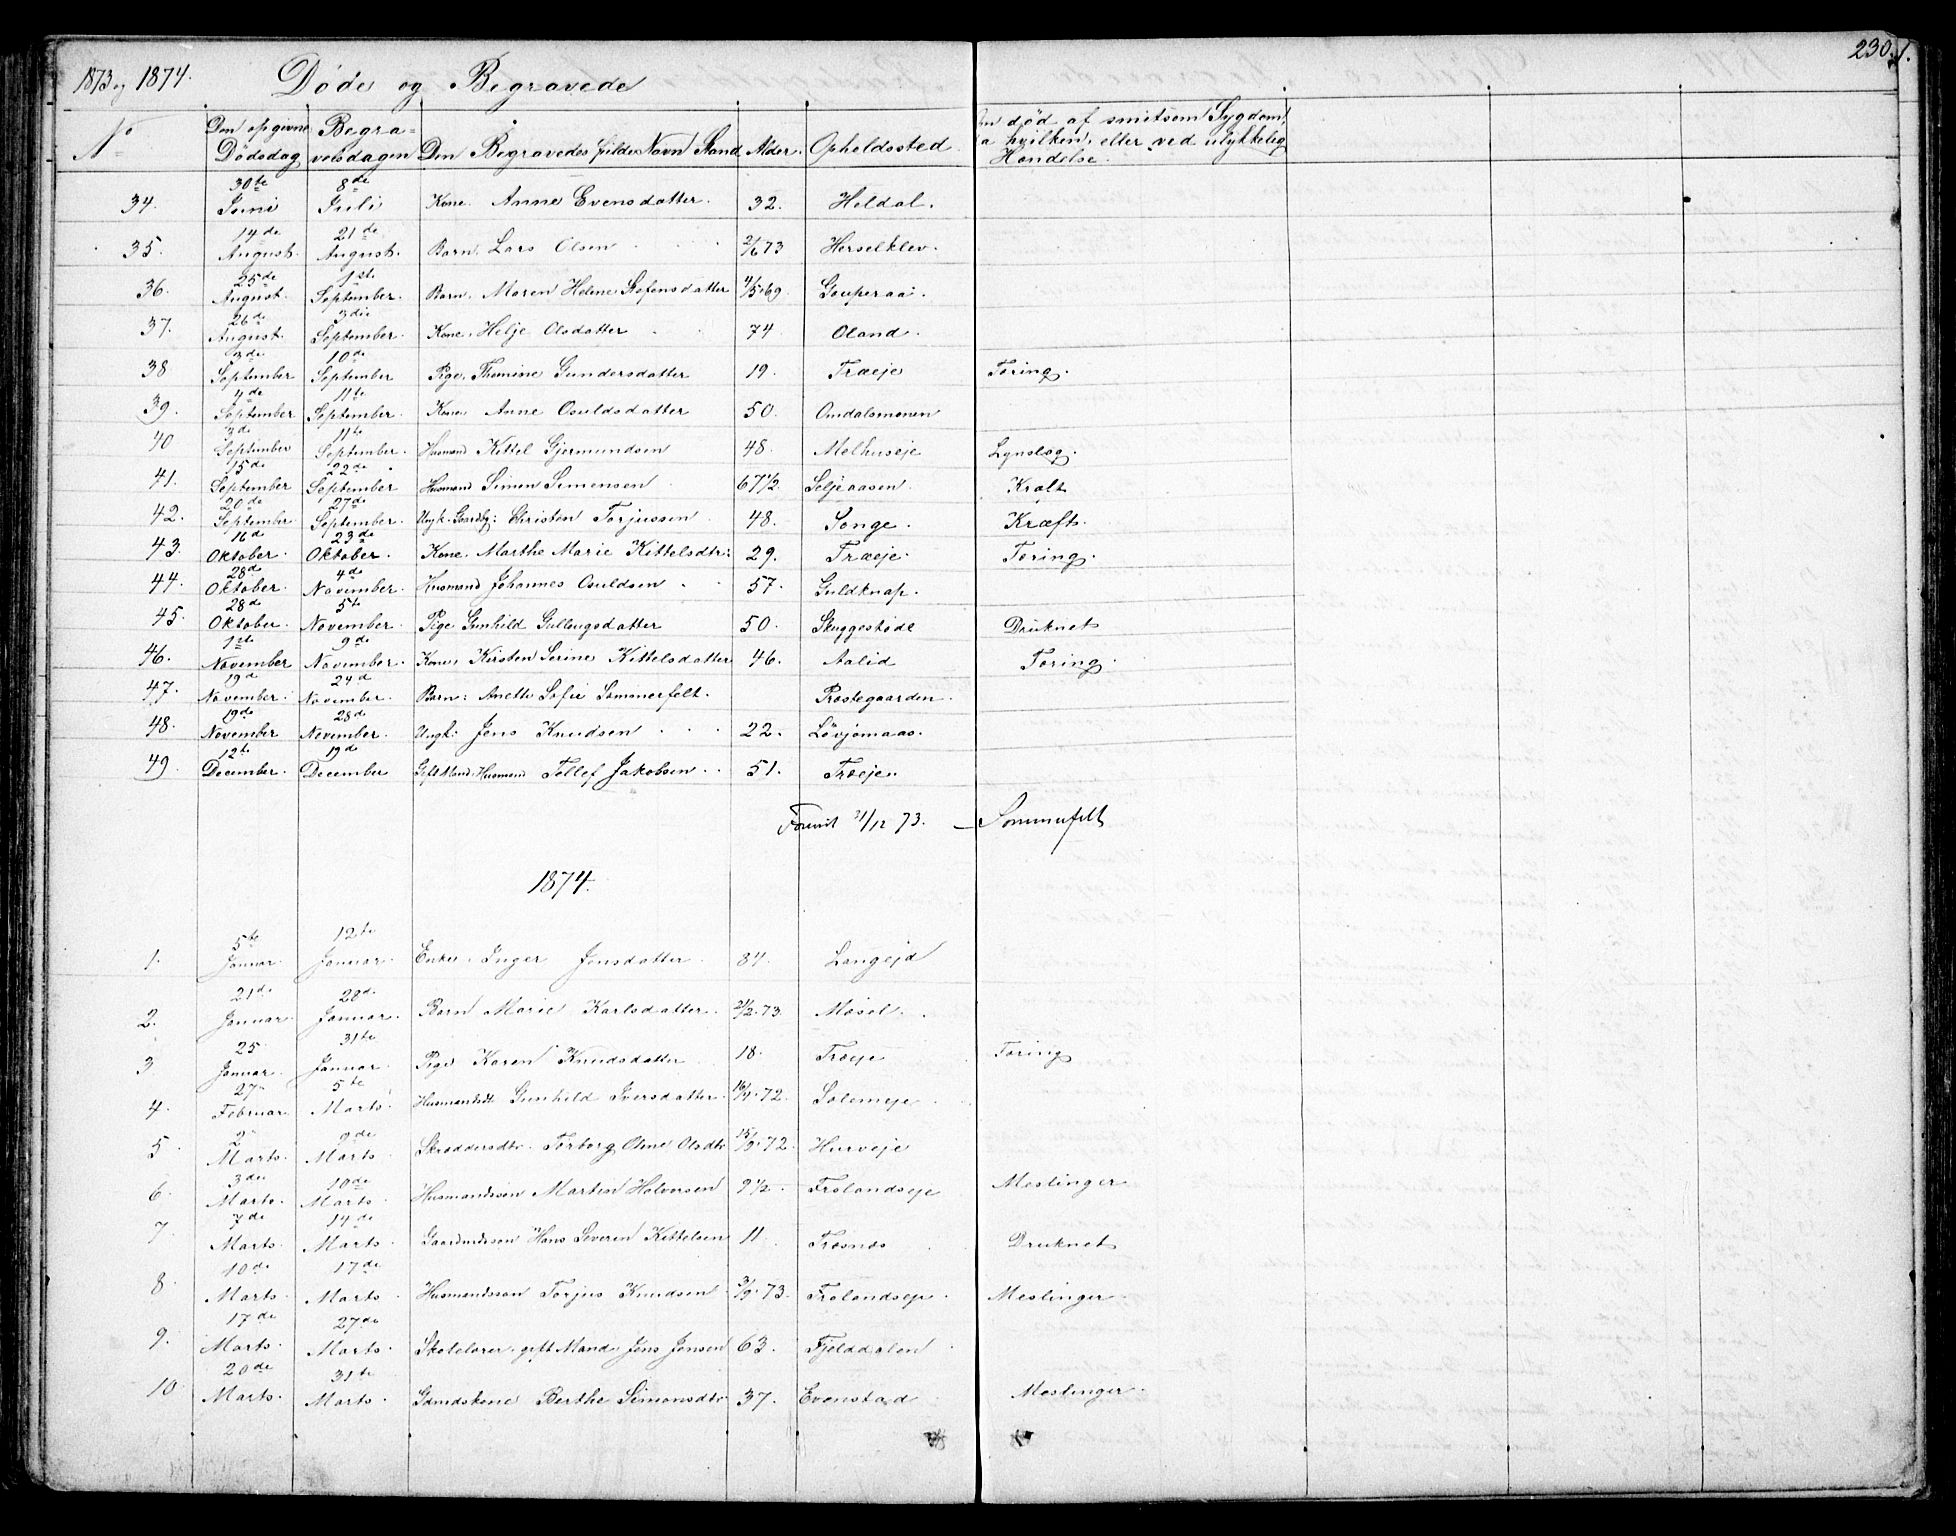 1873 og 1874. Døde og Begravede 230.
No Den opgivne Dødsdag Begravelsdagen Den Begravedes fulde Navn Stand Alder. Opholdssted Om død af smitsom Sygdom, hvilken, eller ved ulykkelig Hændelse.
34. 30te Juni 8de Juli Kone. Anne Evensdatter. 32. Heldal.
35. 14de August. 21de August. Barn. Lars Olsen 2/6 73 Herselklev.
36. 25de August. 1ste September. Barn. Maren Helene Stefensdatter 4/5 69. Gauperaa.
37. 26de August. 3die September. Kone. Helje Olsdatter 74 Oland.
38 3de September 10de September Pige. Thomine Gundersdatter 19. Træeje Tæring.
39. 4de September 11te September. Kone. Anne Osuldsdatter 50. Omdalsmonen
40 3de September 11te September. Husmand Kittel Gjermundsen 48. Melhuseje Lynslag.
41. 15de September 22de September Husmand Simon Simensen 67 1/2. Seljeaasen Kralt
42. 20de September 27de September. Ungk. Gaardbr: Christen Torjussen 48. Songe. Kræft.
43. 16de Oktober. 23de Oktober. Kone. Marthe Marie Kittelsdtr: 29. Træeje. Tæring.
44. 28de Oktober. 4de November. Husmand Johannes Osuldsen 57. Guldknap.
45. 28de Oktober. 5te November. Pige Gunhild Gullaugsdatter 50. Skuggestøl Druknet
46. 1ste November 9de November. Kone. Kirsten Serine Kittelsdatter 46. Aalid Tæring.
47. 19d November. 24d November. Barn: Anette Sofie Sommerfelt. Præstegaarden.
48. 19de November 28de November. Ungk: Jens Knudsen 22. Løvjomaas.
49. 12te December. 19d December Gift Mand. Husmand Tellef Jakobsen 51. Træeje.
31/12 73. — Sommerfelt
1874.
1. 5te Januar. 12te Januar. Enke. Inger Jensdatter 84. Langejd
2. 21de Januar. 28de Januar. Barn Marie Karlsdatter. 21/2. 73. Mosel.
3. 25 Januar. 31te Januar. Pige Karen Knudsdatter 18. Træeje Tæring
4. 27de Februar. 5te Marts. Husmandsdt Gunhild Iversdatter. 16/4. 72. Solemeje
5. 2 Marts. 9de Marts. Skræddersdtr. Torborg Oline Olsdtr 15/9. 72. Hurveje
6. 3die Marts. 10de Marts. Husmandssøn Martin Halvorsen 9 1/2. Frolandseje Meslinger
7. 7de Marts. 14de Marts. Gaardmdssøn Hans Severin Kittelsen 11. Trøsnes Druknet
8. 10de Marts. 17de Marts. Husmandssøn Torjus Knudsen 3/9. 73. Frolandseje. Meslinger
9. 17de Marts. 27de Marts. Skolelærer. gift Mand. Jens Jensen 63. Fjelddalen
10 20de Marts. 31te Marts. Gdmdskone Berthe Simonsdtr 37. Evenstad Meslinger.